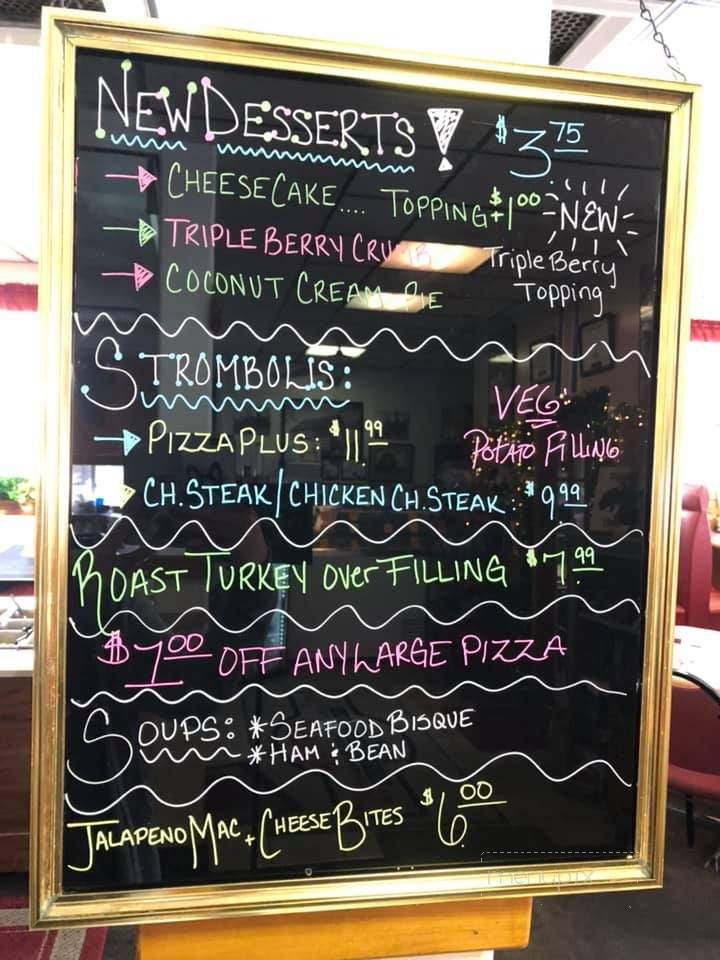 NEW DESSERTS! $3.75
CHEESECAKE.... TOPPING + $1.00 -NEW-
TRIPLE BERRY CRUMB Triple Berry
COCONUT CREAM PIE Topping
STROMBOLIS:
VEG:
PIZZA PLUS: $11.99 POTATO FILLING
CH. STEAK/CHICKEN CH. STEAK: $9.99
ROAST TURKEY over FILLING $7.99
$1.00 OFF ANY LARGE PIZZA
SOUPS: *SEAFOOD BISQUE
*HAM & BEAN
JALAPENO MAC + CHEESE BITES $6.00
menupix